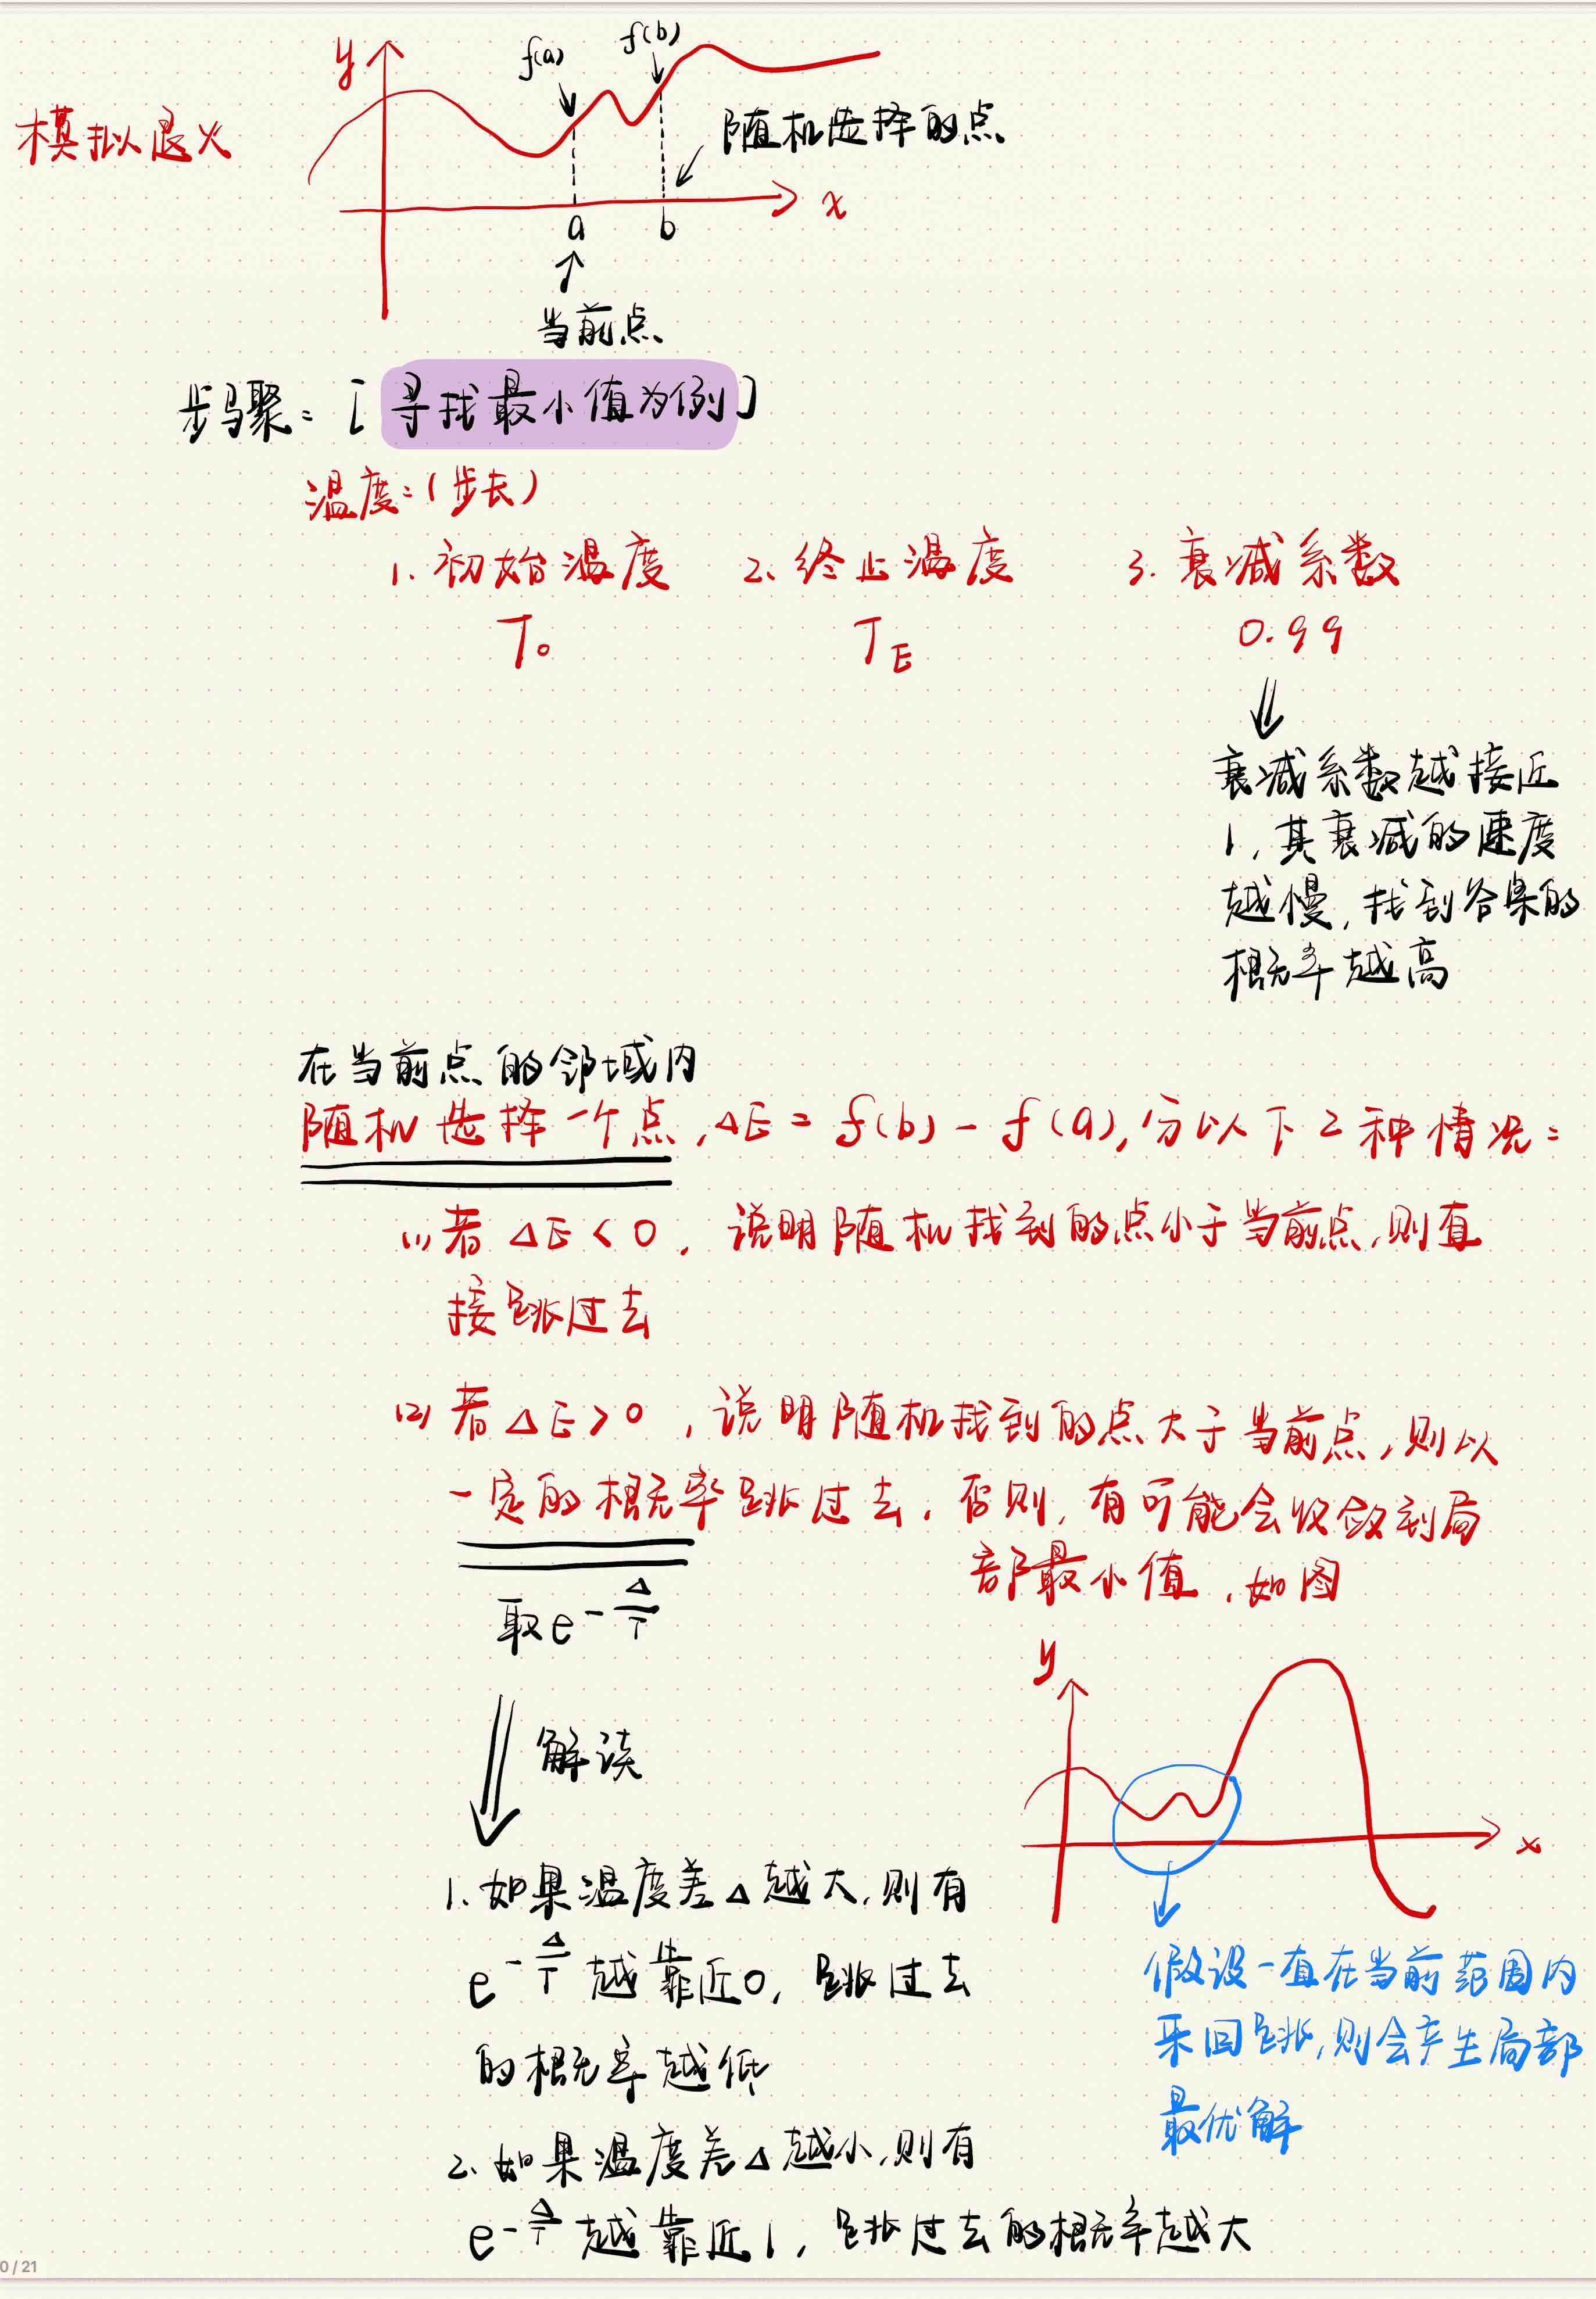 模拟退火
y
f(a)
f(b)
随机选择的点
x
a
b
当前点
步骤：[寻找最小值为例]
温度：(步长)
1. 初始温度 2. 终止温度 3. 衰减系数
T₀ T_E 0.99
衰减系数越接近
1，其衰减的速度
越慢，找到答案的
概率越高
在当前点的邻域内
随机选择一个点，ΔE = f(b) - f(a)，分以下2种情况：
(1) 若 ΔE < 0，说明随机找到的点小于当前点，则直
接跳过去
(2) 若 ΔE > 0，说明随机找到的点大于当前点，则以
一定的概率跳过去，否则，有可能会收敛到局
部最小值，如图
取 e^{-Δ/T}
解读
1. 如果温度差Δ越大，则有
e^{-Δ/T} 越靠近0，跳过去
的概率越低
2. 如果温度差Δ越小，则有
e^{-Δ/T} 越靠近1，跳过去的概率越大
y
x
假设一直在当前范围内
来回跳，则会产生局部
最优解
0 / 21